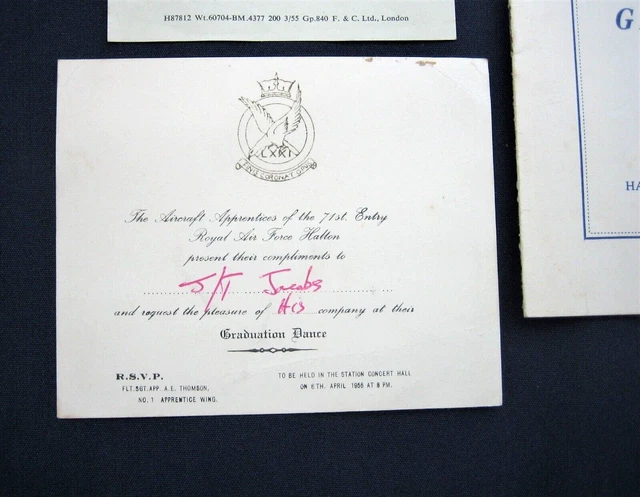 H87812 Wt.60704-BM.4377 200 3/55 Gp.840 F. & C. Ltd., London
G
HA
LXXI
FINIS CORONAT OPUS
The Aircraft Apprentices of the 71st. Entry
Royal Air Force Halton
present their compliments to
S/T Jacobs
and request the pleasure of His company at their
Graduation Dance
R.S.V.P.
FLT.SGT.APP. A.E. THOMSON,
NO. 1 APPRENTICE WING.
TO BE HELD IN THE STATION CONCERT HALL
ON 6TH. APRIL 1955 AT 8 PM.